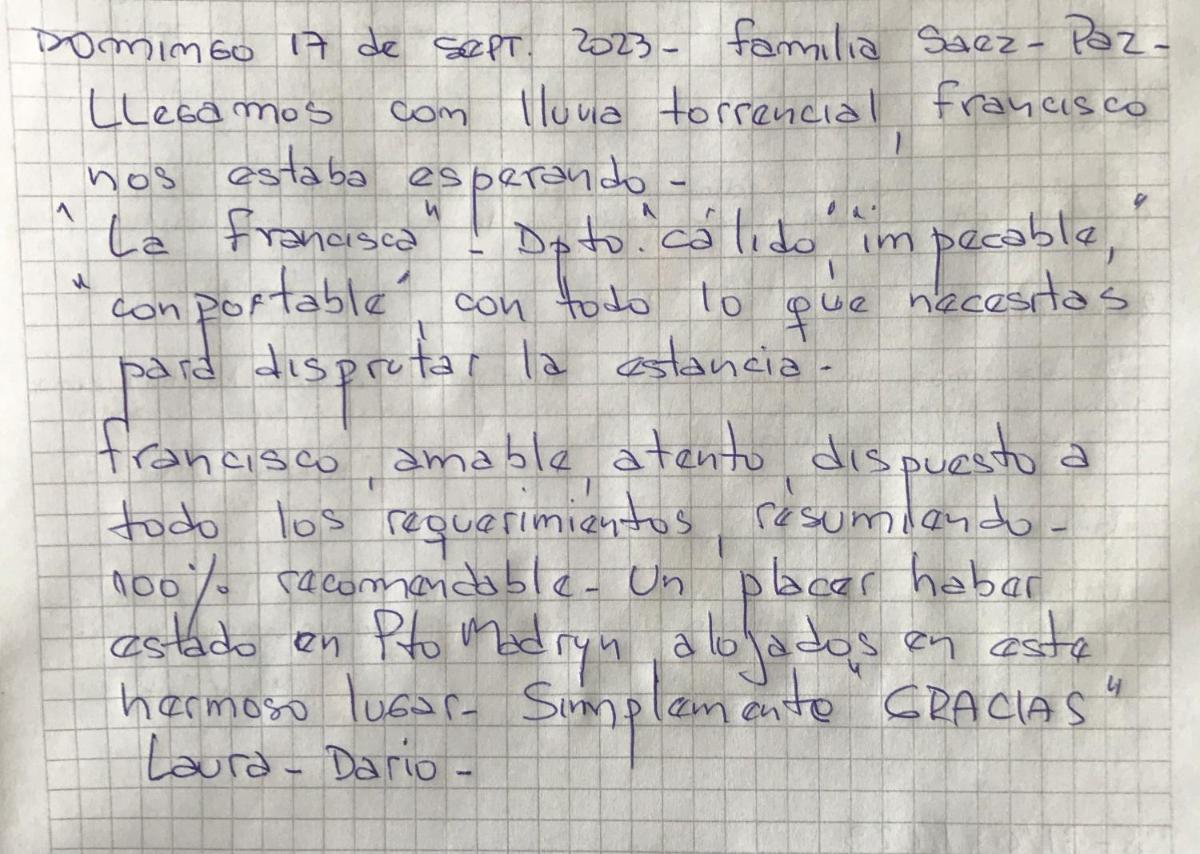 Domingo 17 de Sept. 2023 - familia Saez - Paz -
Llegamos con lluvia torrencial, francisco
nos estaba esperando -
"La francisca" - Dpto. "cálido" "impecable",
"conportable", con todo lo que necesitas
para disprutar la estancia -
francisco, amable, atento, dispuesto a
todo los requerimientos, resumiendo -
100% recomendable - Un placer haber
estado en Pto Madryn, alojados en este
hermoso lugar - Simnplemente "GRACIAS"
Laura - Dario -